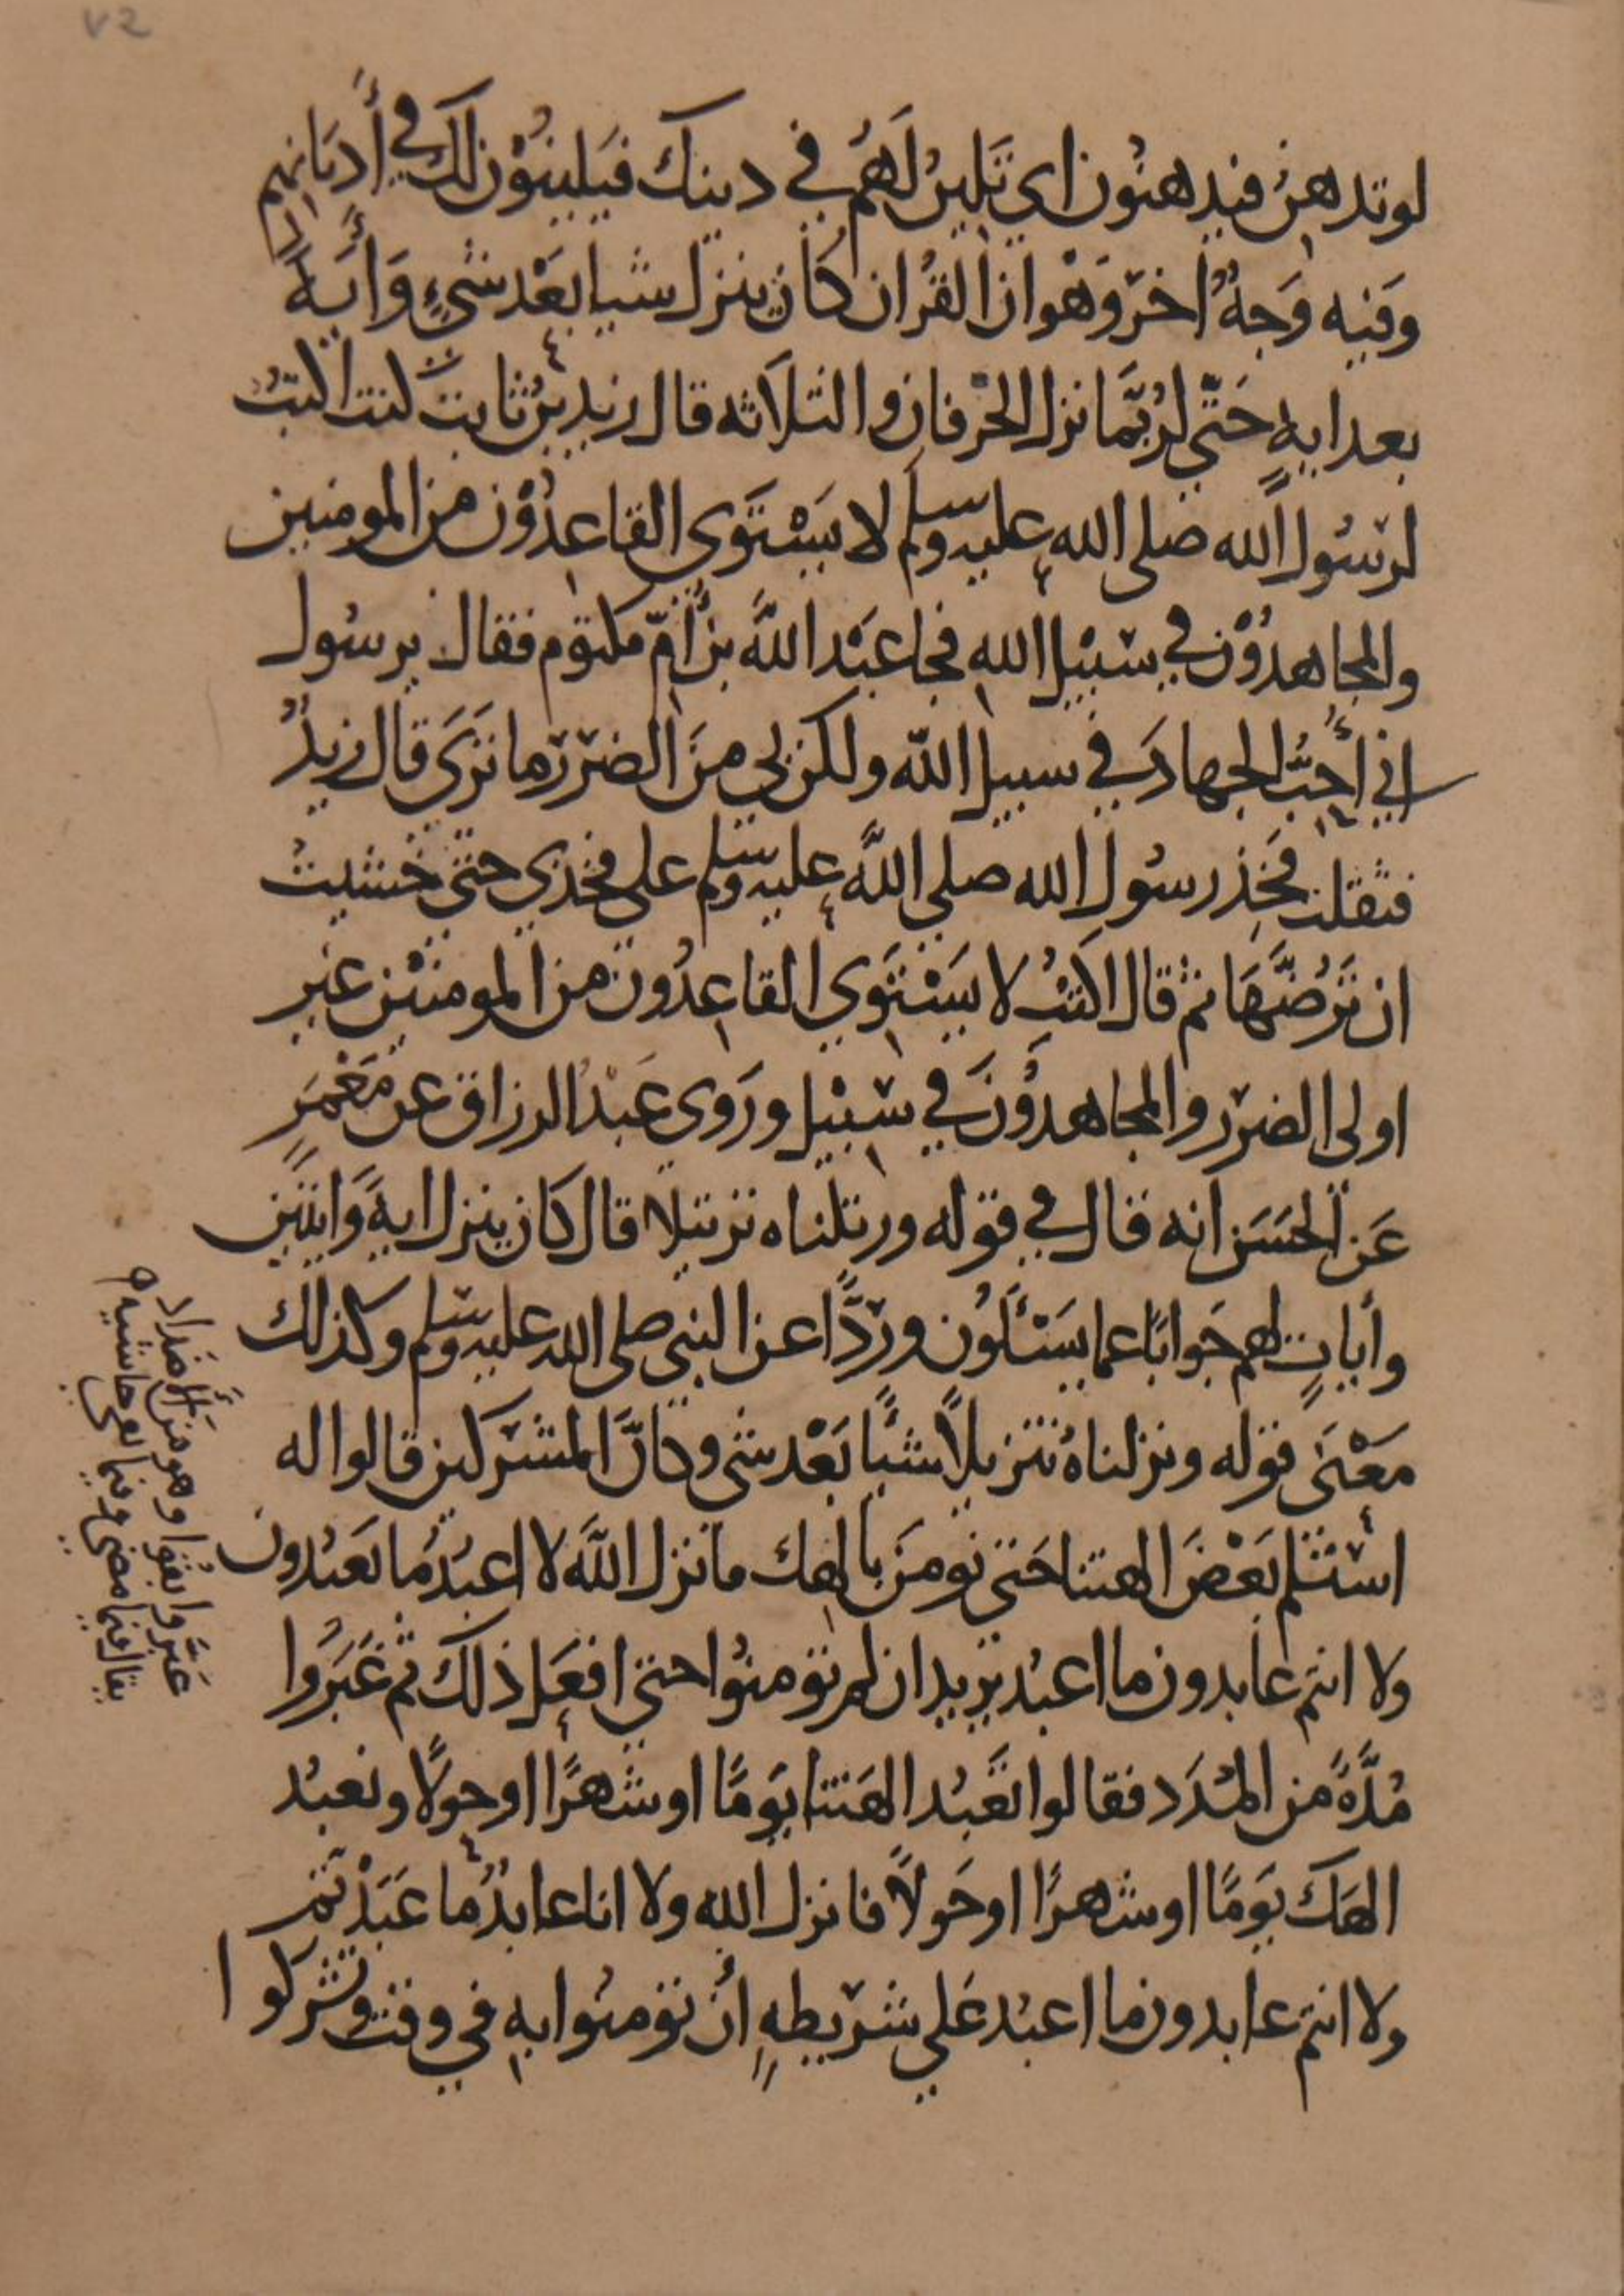 ٧٢
لو تدهن فيدهنون اي تَلينُ لَهُم في دينك فيَلينُوْن لك في أَديَانِهم
وفيه وَجهٌ اخر وَهْو ان القُران كَان ينزل شيا بعْد شيْءٍ وَأَيَةً
بعد ايهٍ حَتّي لرُبَّما نزل الحرْفان والثلاثه قال زيد بنُ ثابت كنت اكتبُ
لرسُول الله صلى الله عليه وسلم لا يَسْتَوي القاعدُوْن من المومنين
والمجاهدُوْن في سَبيْل الله فجا عبَد اللهَ بن أمّ مكتوم فقال يرسُول
اني أُحِبُّ الجهادَ في سبيل اللّه ولكن بي منَ الضرر ما تَرَي قال زيدٌ
فثقلت فَخِذ رسُولِ الله صلي اللّه عليه وسلم علي فخذي حتي خشيتُ
ان تَرُضَّهَا ثم قال اكتُبْ لا يَسْتَوي القاعِدُون من المومنين غير
اولى الضرر والمجاهدوُنَ في سَبيْل ورَوى عَبْدُ الرزاق عن مَعْمَرٍ
عَن الحَسَن انه قال في قوله ورتلناه ترتيلا قال كان ينزل ايهً وَايتَين
وأياتٍ لهم جَوابًا عما يسَئَلُون وردًّا عن النبي صلى الله عليه وسلم وكذلك
معْنَى قوله ونزلناهُ تنزيلاً شيًا بَعْد شي وكانَّ المشركين قالوا له
استلم بَعْضَ الهتنا حَتى نومن بالهك فانزل اللّهَ لا اعبُد ما تعبُدون
ولا انتم عابدون ما اعبُد يريد ان لم تومنوُا حتي افعَل ذلك ثم غَبَروا
مُدَّةً من المُدَد فقالوا تعَبُد الهَتنا يوَمًا او شهرًا او حولًا ونعبُد
الهَك يوَمًا او شهرًا او حَولاً فانزل الله ولا انا عابدُ ما عَبَدْتم
ولا انتم عابدون ما اعبُد علي شريطهٍ أن تومنُوا به في وقت وتشركوا
غبَروا بقُوا وهو من الأَضداد
يقال فيما مضى وفيما بقى حاشيه